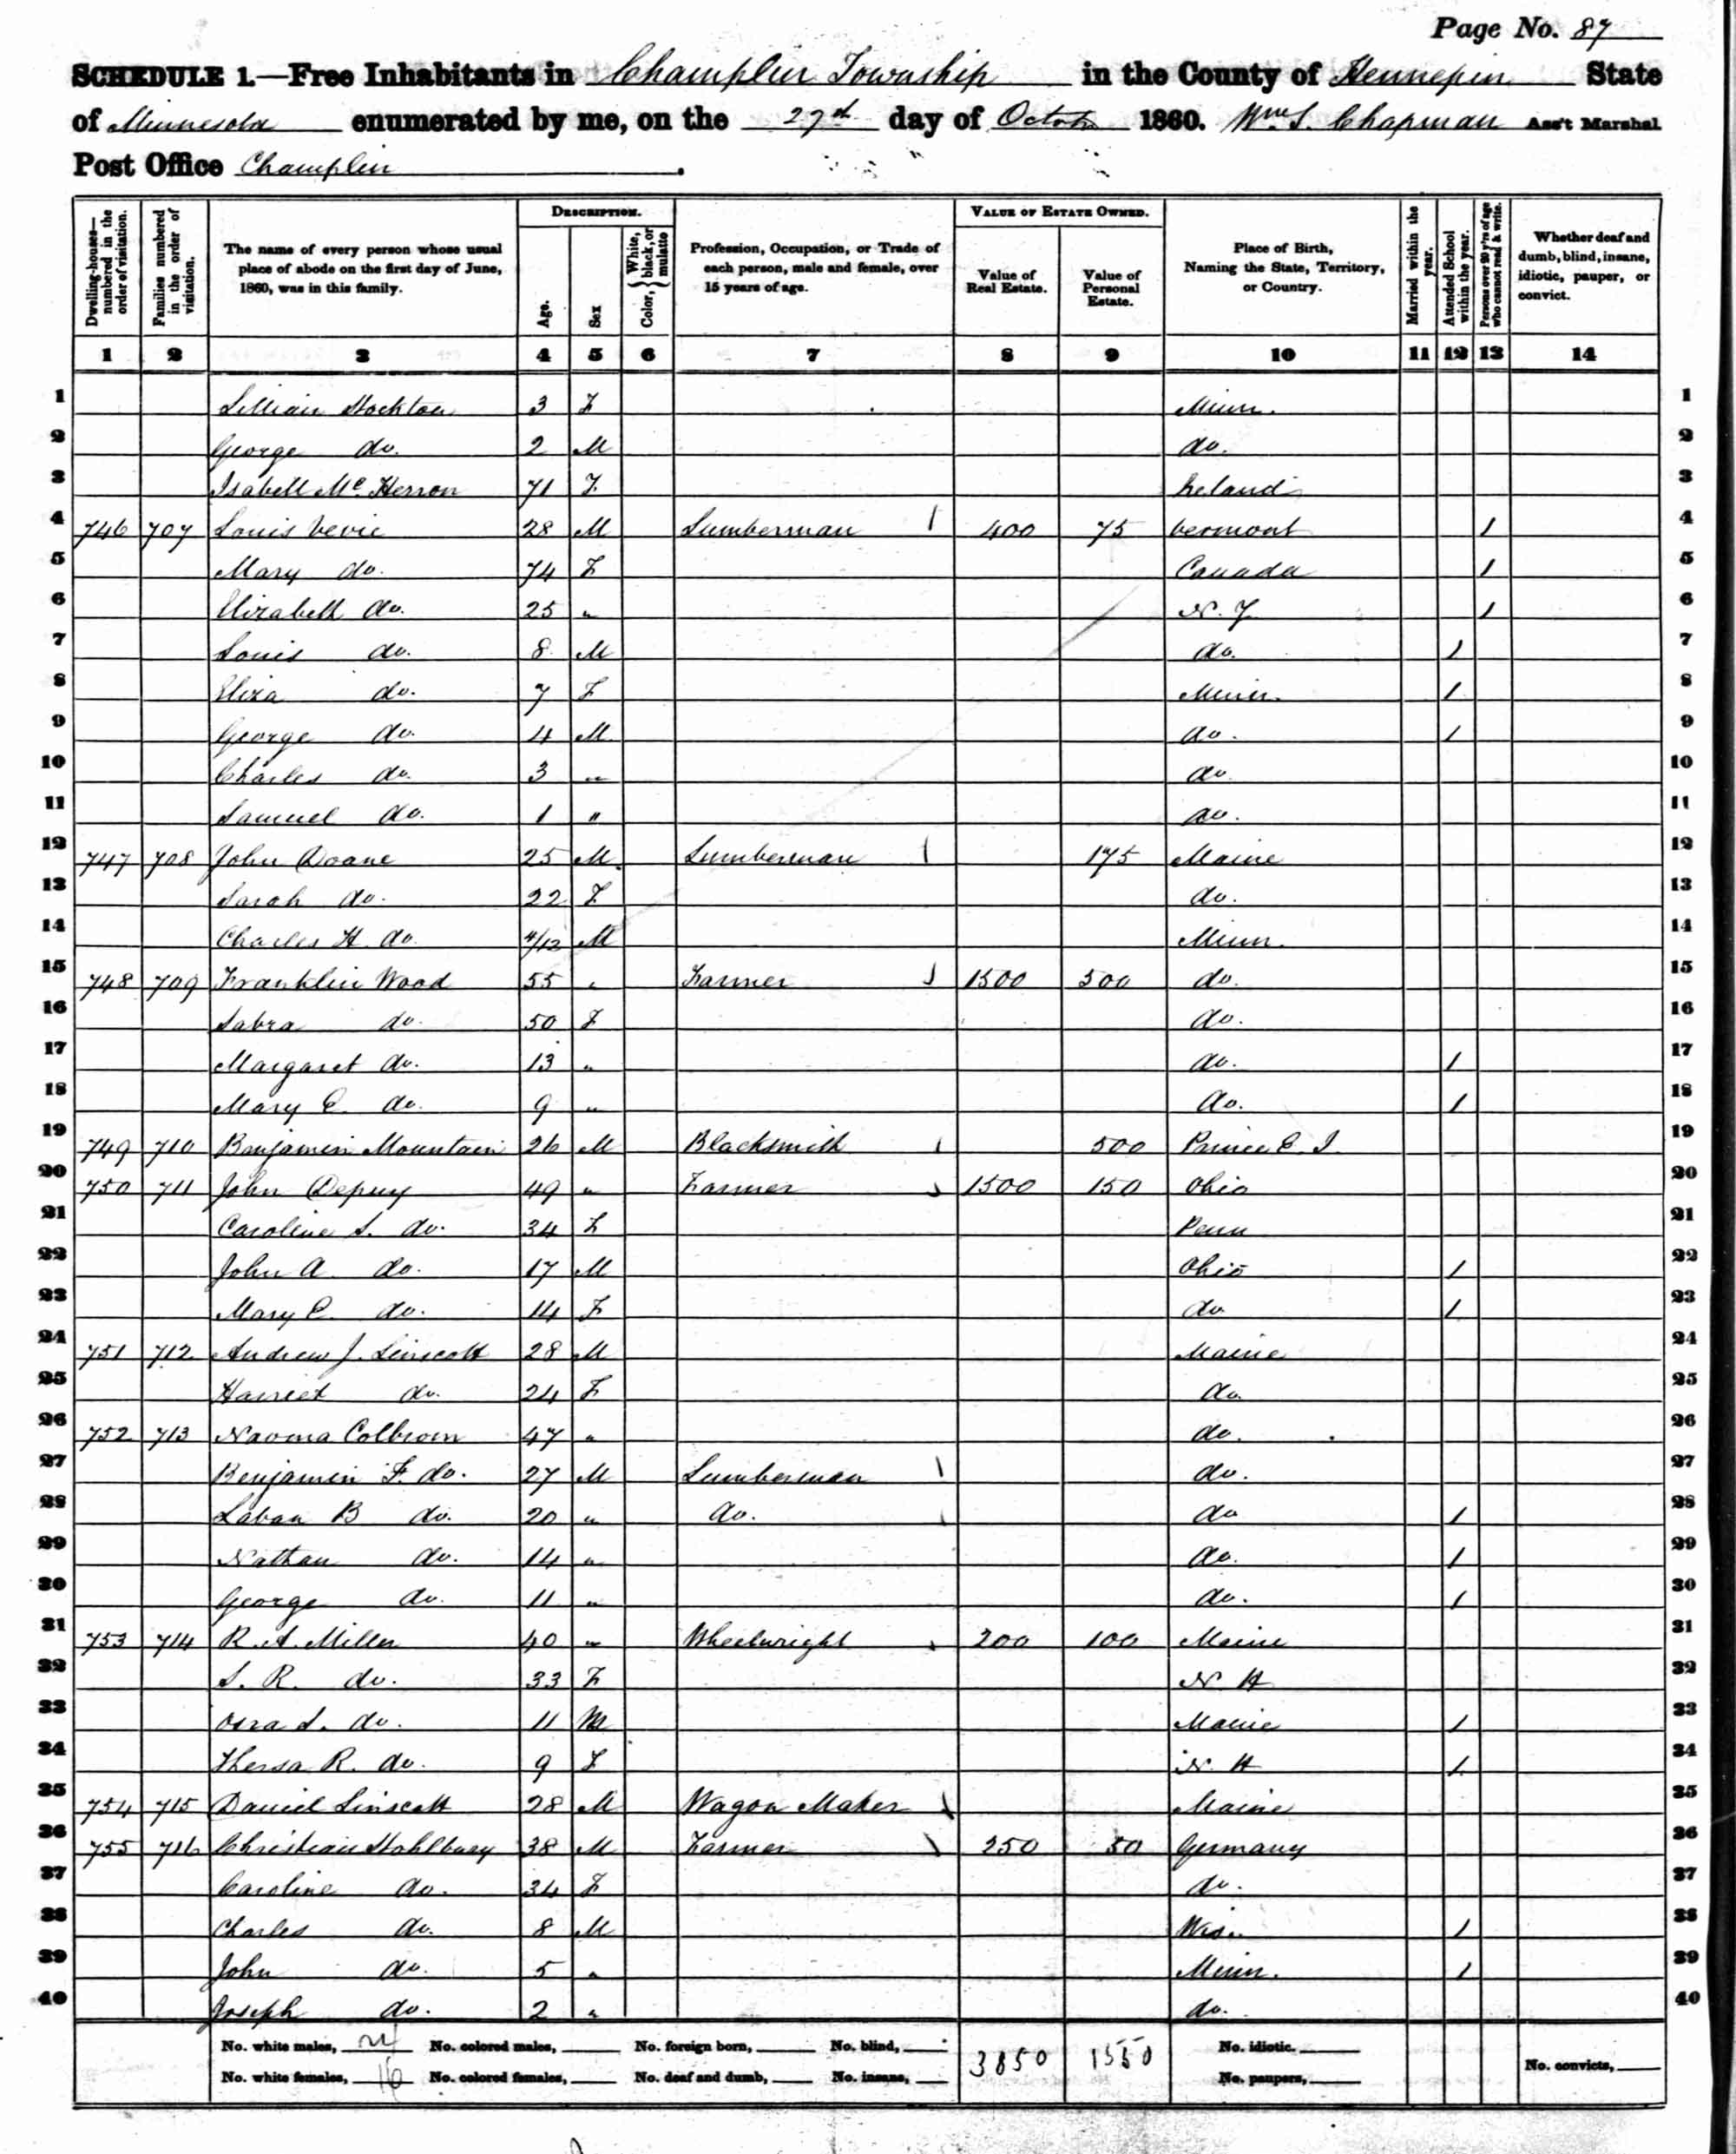 Page No. 87
SCHEDULE 1.—Free Inhabitants in Champlin Township in the County of Hennepin State
of Minnesota enumerated by me, on the 27d day of October 1860. Wm S. Chapman Ass't Marshal
Post Office Champlin .
Dwelling-houses—numbered in the order of visitation.
Families numbered in the order of visitation.
The name of every person whose usual place of abode on the first day of June, 1860, was in this family.
DESCRIPTION.
Age.
Sex
Color, { White, black, or mulatto
Profession, Occupation, or Trade of each person, male and female, over 15 years of age.
VALUE OF ESTATE OWNED.
Value of Real Estate.
Value of Personal Estate.
Place of Birth, Naming the State, Territory, or Country.
Married within the year.
Attended School within the year.
Persons over 20 y'rs of age who cannot read & write.
Whether deaf and dumb, blind, insane, idiotic, pauper, or convict.
1 2 3 4 5 6 7 8 9 10 11 12 13 14
1 Lillian Stockton 3 F Minn. 1
2 George do. 2 M do. 2
3 Isabell Mc Herron 71 F Ireland 3
4 746 707 Louis Vevie 28 M Lumberman 1 400 75 Vermont 1 4
5 Mary do. 74 F Canada 1 5
6 Elizabeth do. 25 " N. Y. 1 6
7 Louis do. 8 M do. 1 7
8 Eliza do. 7 F Minn. 1 8
9 George do. 4 M do. 1 9
10 Charles do. 3 " do. 10
11 Samuel do. 1 " do. 11
12 747 708 John Doane 25 M. Lumberman 1 175 Maine 12
13 Sarah do. 22 F do. 13
14 Charles H. do. 4/12 M Minn. 14
15 748 709 Franklin Wood 55 " Farmer 1 1500 500 do. 15
16 Sabra do. 50 F do. 16
17 Margaret do. 13 " do. 1 17
18 Mary E. do. 9 " do. 1 18
19 749 710 Benjamin Mountain 26 M Blacksmith 1 500 Prince E. I. 19
20 750 711 John Depuy 49 " Farmer 1500 150 Ohio 20
21 Caroline S. do. 34 F Penn 21
22 John A. do. 17 M Ohio 1 22
23 Mary E. do. 14 F do. 1 23
24 751 712 Andrew J. Linscott 28 M Maine 24
25 Harriet do. 24 F do. 25
26 752 713 Naoma Colbrom 47 " do. 26
27 Benjamin F. do. 27 M Lumberman 1 do. 27
28 Laban B do. 20 " do. do 1 28
29 Nathan do. 14 " do. 1 29
30 George do. 11 " do. 1 30
31 753 714 R. A. Miller 40 " Wheelwright 200 100 Maine 31
32 S. R. do. 33 F N. H 32
33 S. do. 11 M Maine 1 33
34 Thersa R. do. 9 F N. H 1 34
35 754 715 Daniel Linscott 28 M Wagon Maker Maine 35
36 755 716 Christian Stohlbury 38 M Farmer 250 50 Germany 36
37 Caroline do. 34 F do. 37
38 Charles do. 8 M Wis. 1 38
39 John do. 5 " Minn. 1 39
40 Joseph do. 2 " do. 40
No. white males, 24 No. colored males, No. foreign born, No. blind, 3850 1550 No. idiotic.
No. white females, 16 No. colored females, No. deaf and dumb, No. insane, No. paupers, No. convicts,